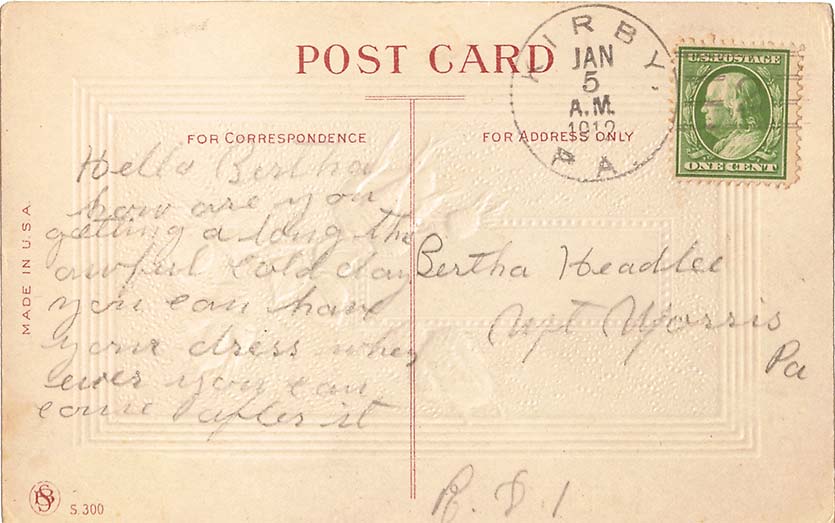 POST CARD
KIRBY
JAN
5
A.M.
1912
PA.
U.S. POSTAGE
ONE CENT
FOR CORRESPONDENCE
FOR ADDRESS ONLY
MADE IN U.S.A.
Hello Bertha
how are you
getting a long the
awful cold day
you can have
your dress when
ever you can
come after it
Bertha Headlee
Mt Morris
Pa
R. D. 1
S. 300